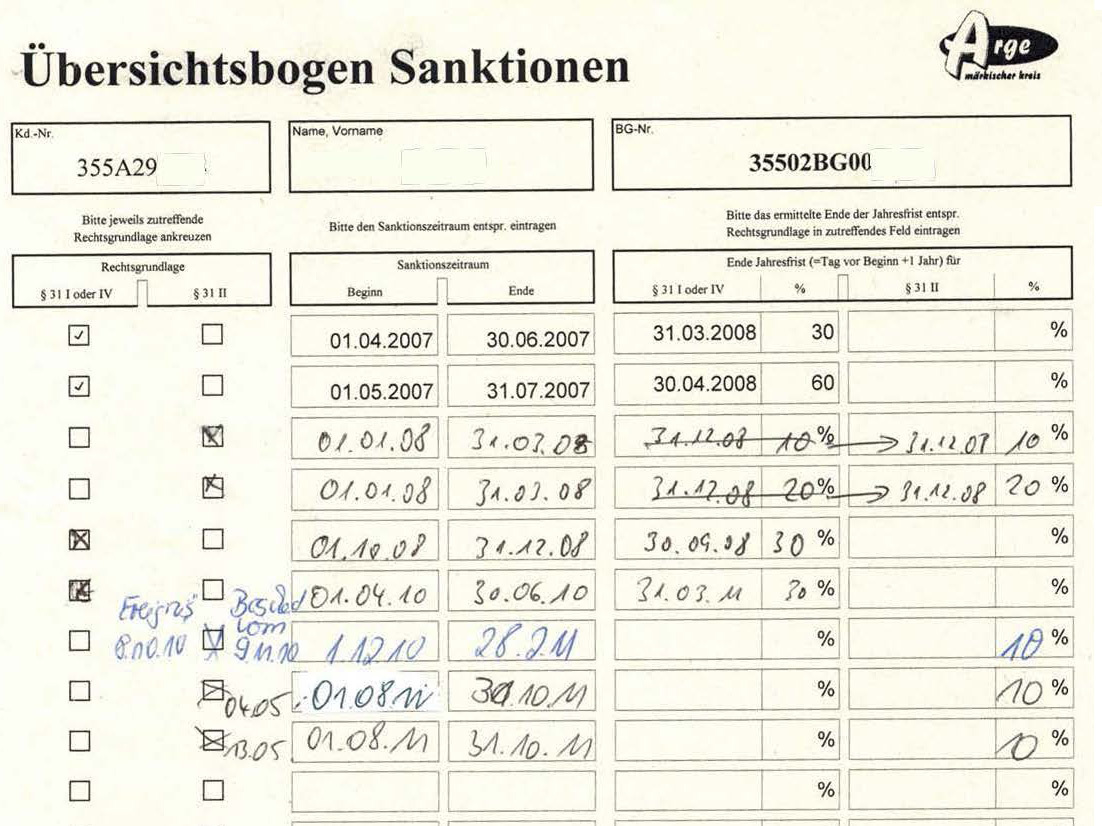 Übersichtsbogen Sanktionen
Arge
märkischer kreis
Kd.-Nr.
355A29
Name, Vorname
BG-Nr.
35502BG00
Bitte jeweils zutreffende
Rechtsgrundlage ankreuzen
Bitte den Sanktionszeitraum entspr. eintragen
Bitte das ermittelte Ende der Jahresfrist entspr.
Rechtsgrundlage in zutreffendes Feld eintragen
Rechtsgrundlage
Sanktionszeitraum
Ende Jahresfrist (=Tag vor Beginn +1 Jahr) für
§ 31 I oder IV § 31 II Beginn Ende § 31 I oder IV % § 31 II %
01.04.2007 30.06.2007 31.03.2008 30 %
01.05.2007 31.07.2007 30.04.2008 60 %
01.01.08 31.03.08 31.12.08 10% 31.12.08 10 %
01.01.08 31.03.08 31.12.08 20% 31.12.08 20 %
01.10.08 31.12.08 30.09.08 30 % %
01.04.10 30.06.10 31.03.11 30 % %
Ereignis Bescheid
8.10.10 vom
9.11.10 1.12.10 28.2.11 % 10 %
04.05. 01.08.11 31.10.11 % 10 %
13.05. 01.08.11 31.10.11 % 10 %
% %